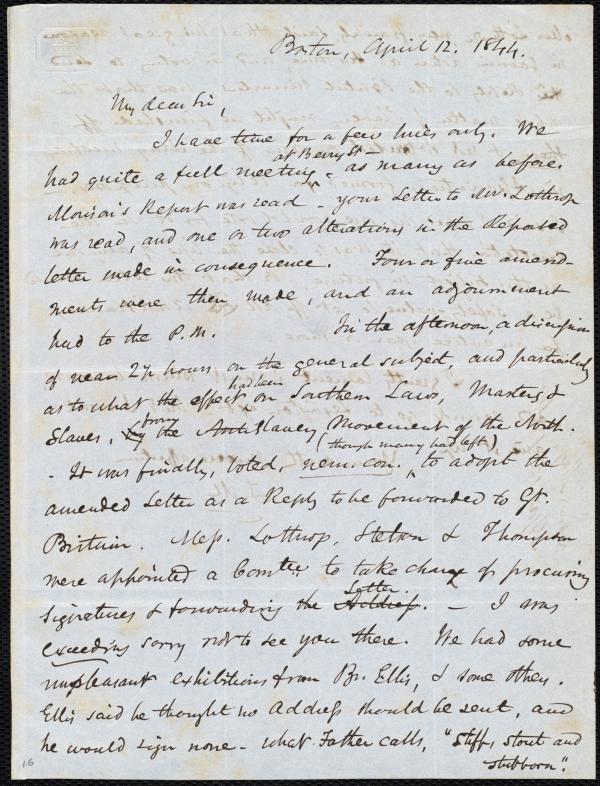 Boston, April 12. 1844.
My dear Sir,
I have time for a few lines only. We
at Berry St.
had quite a full meeting, - as many as before.
Morison's Report was read - your Letter to Mr. Lothrop
was read, and one or two alterations in the Reported
letter made in consequence. Four or five amend-
ments were then made, and an adjournment
had to the P.M. In the afternoon, a discussion
of near 2½ hours on the general subject, and particularly
had been
as to what the effect on Southern Laws, Masters &
from
Slaves, by the Anti Slavery Movement of the North.
(though many had left)
- It was finally, voted, nem. con. to adopt the
amended Letter as a Reply to be forwarded to Gt.
Britain. Mess. Lothrop, Stetson & Thompson
were appointed a Comtee to take charge of procuring
Letter.
signatures & forwarding the Address. - I was
exceeding sorry not to see you there. We had some
unpleasant exhibitions from Br. Ellis, & some others.
Ellis said he thought no Address should be sent, and
he would sign none - what Father calls, "Stiff, stout and
stubborn".
16